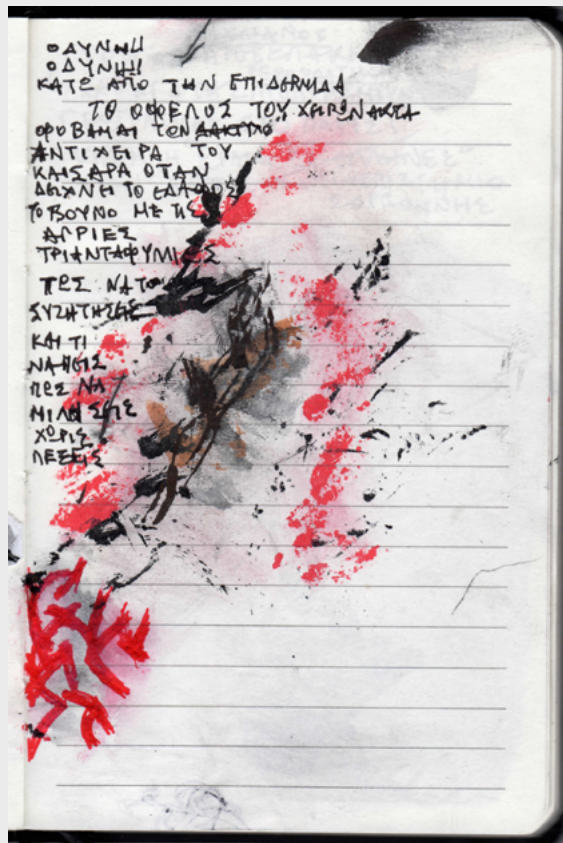 ΟΔΥΝΗ!!
ΟΔΥΝΗ!!
ΚΑΤΩ ΑΠΟ ΤΗΝ ΕΠΙΔΕΡΜΙΔΑ
ΤΟ ΟΦΕΛΟΣ ΤΟΥ ΧΕΙΡΩΝΑΚΤΑ
ΦΟΒΑΜΑΙ ΤΟΝ ΔΑΚΤΥΛΟ
ΑΝΤΙΧΕΙΡΑ ΤΟΥ
ΚΑΙΣΑΡΑ ΟΤΑΝ
ΔΕΙΧΝΗ ΤΟ ΕΔΑΦΟΣ
ΤΟ ΒΟΥΝΟ ΜΕ ΤΙΣ
ΑΓΡΙΕΣ
ΤΡΙΑΝΤΑΦΥΛΛΙΕΣ
ΠΩΣ ΝΑ ΤΟ
ΣΥΖΗΤΗΣΕΙΣ
ΚΑΙ ΤΙ
ΝΑ ΠΕΙΣ
ΠΩΣ ΝΑ
ΜΙΛΗΣΕΙΣ
ΧΩΡΙΣ
ΛΕΞΕΙΣ